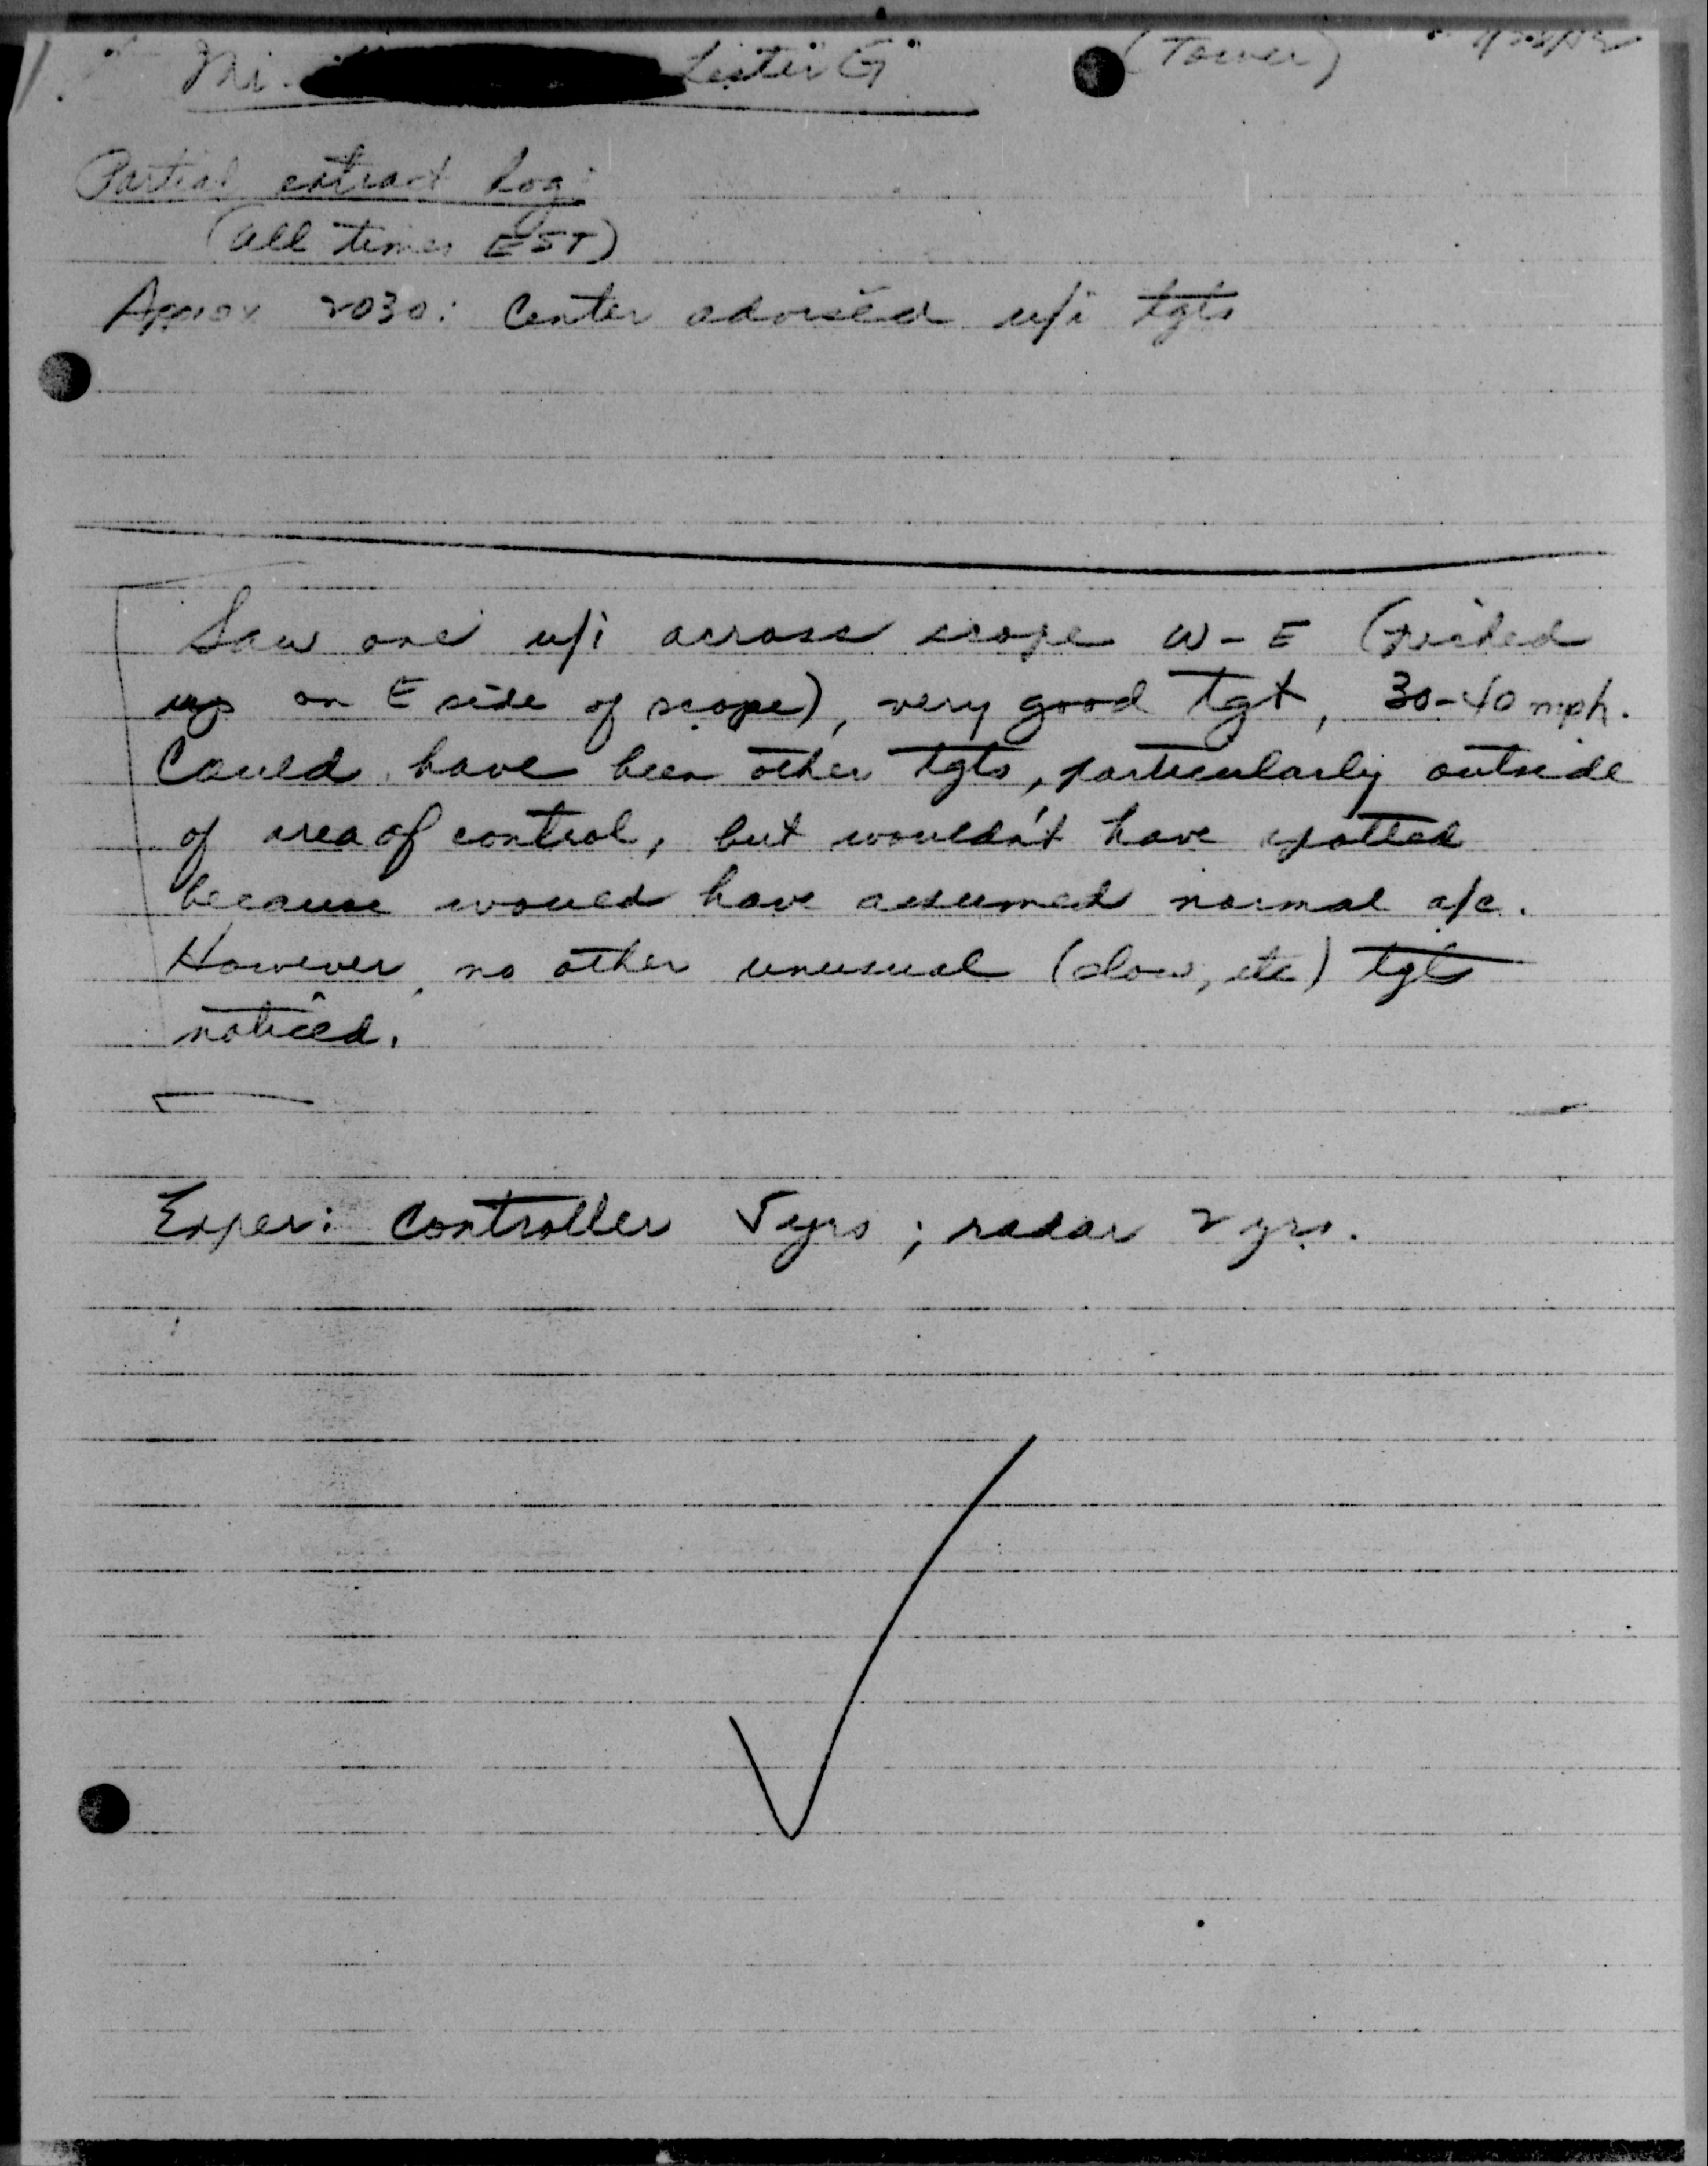 Mr. Lester G (Tower)
Partial extract log:
(all times EST)
Approx 2030: Center advised u/i tgts
Saw one u/i across scope W-E (picked
up on E side of scope), very good tgt, 30-40 mph.
Could have been other tgts, particularly outside
of area of control, but wouldn't have spotted
because would have assumed normal a/c.
However, no other unusual (slow, etc) tgts
noticed.
Exper: Controller 5 yrs; radar 2 yrs.